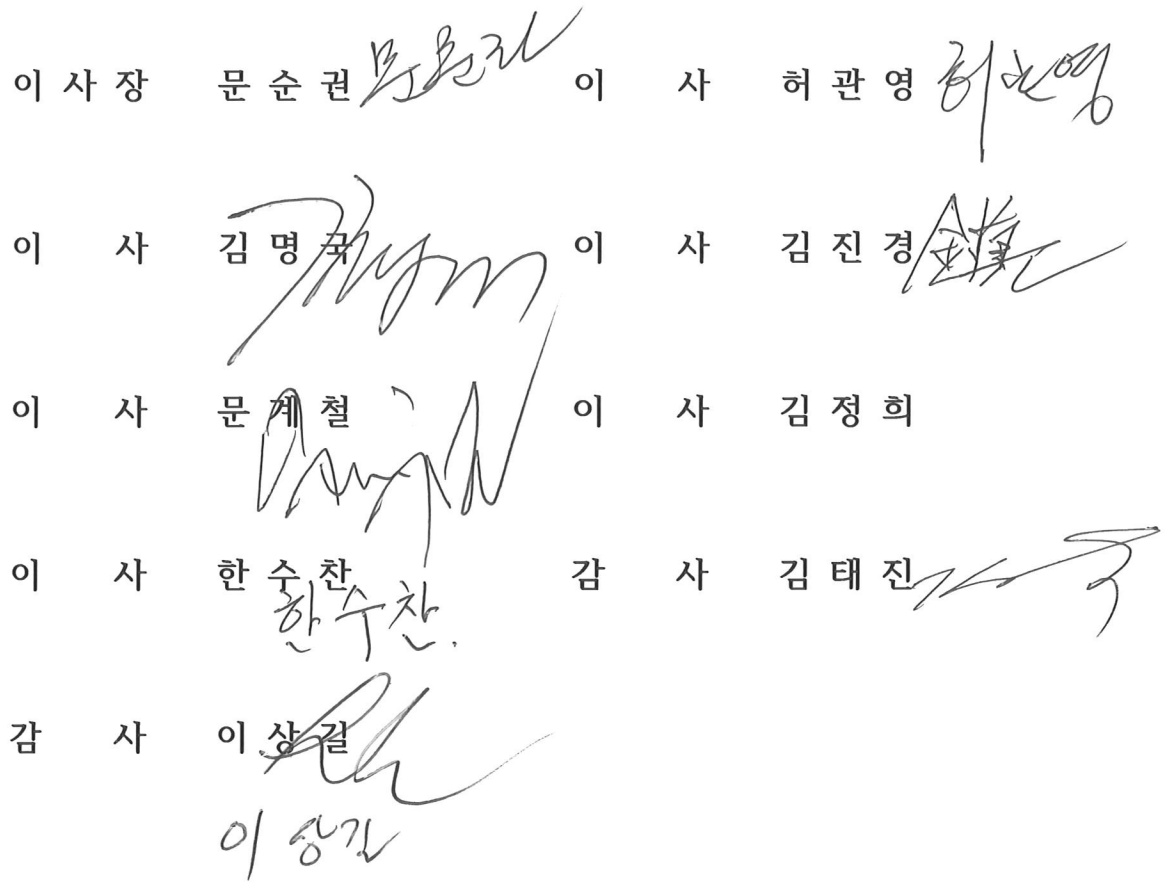 이 사 장 문 순 권 문순권 이 사 허 관 영 허관영
이 사 김 명 국 이 사 김 진 경
이 사 문 계 철 이 사 김 정 희
이 사 한 수 찬 감 사 김 태 진
한수찬.
감 사 이 상 길
이상길